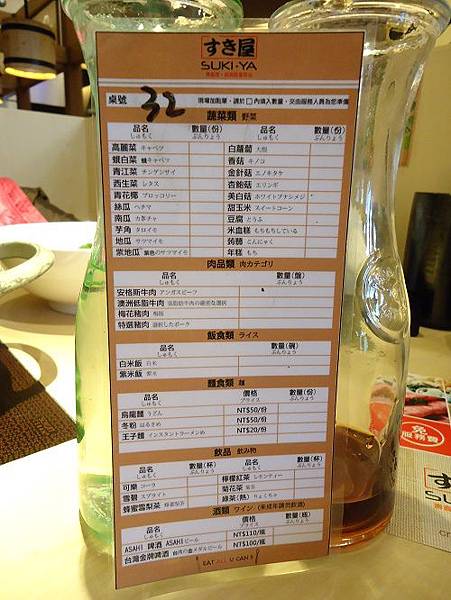 すき屋
SUKI-YA
桌號 32 現場加點單，請於□內填入數量，交由服務人員為您準備
蔬菜類 野菜
品名 數量(份) 品名 數量(份)
しゅもく ぶんりょう しゅもく ぶんりょう
高麗菜 キャベツ 白蘿蔔 大根
娥白菜 キャベツ 香菇 キノコ
青江菜 チンゲンサイ 金針菇 エノキタケ
西生菜 レタス 杏鮑菇 エリンギ
青花椰 ブロッコリー 美白菇 ホワイトブナシメジ
絲瓜 ヘチマ 甜玉米 スイートコーン
南瓜 カボチャ 豆腐 とうふ
芋角 タロイモ 米血糕 もちもちしている
地瓜 サツマイモ 蒟蒻 こんにゃく
紫地瓜 紫色のサツマイモ 年糕 もち
肉品類 肉カテゴリ
品名 數量(盤)
しゅもく ぶんりょう
安格斯牛肉 アンガスビーフ
澳洲低脂牛肉
梅花豬肉
特選豬肉 選択したポーク
飯食類 ライス
品名 數量(碗)
しゅもく ぶんりょう
白米飯 白米
紫米飯 紫米
麵食類 麺
品名 價格 數量(份)
しゅもく プライス ぶんりょう
烏龍麵 うどん NT$50/份
冬粉 はるさめ NT$50/份
王子麵 インスタントラーメンめ NT$20/份
飲品 飲み物
品名 數量(杯) 品名 數量(杯)
しゅもく ぶんりょう しゅもく ぶんりょう
可樂 コーラ 檸檬紅茶 レモンティー
雪碧 スプライト 菊花茶 菊茶
蜂蜜雪梨茶 綠茶(熱) りょくちゃ
酒類 ワイン (未成年請勿飲酒)
品名 價格 數量(瓶)
しゅもく プライス ぶんりょう
ASAHI 啤酒 ASAHIビール NT$110/瓶
台灣金牌啤酒 台湾の金メダルビール NT$100/瓶
EAT ALL U CAN !
免
服務費
すき
SUKI